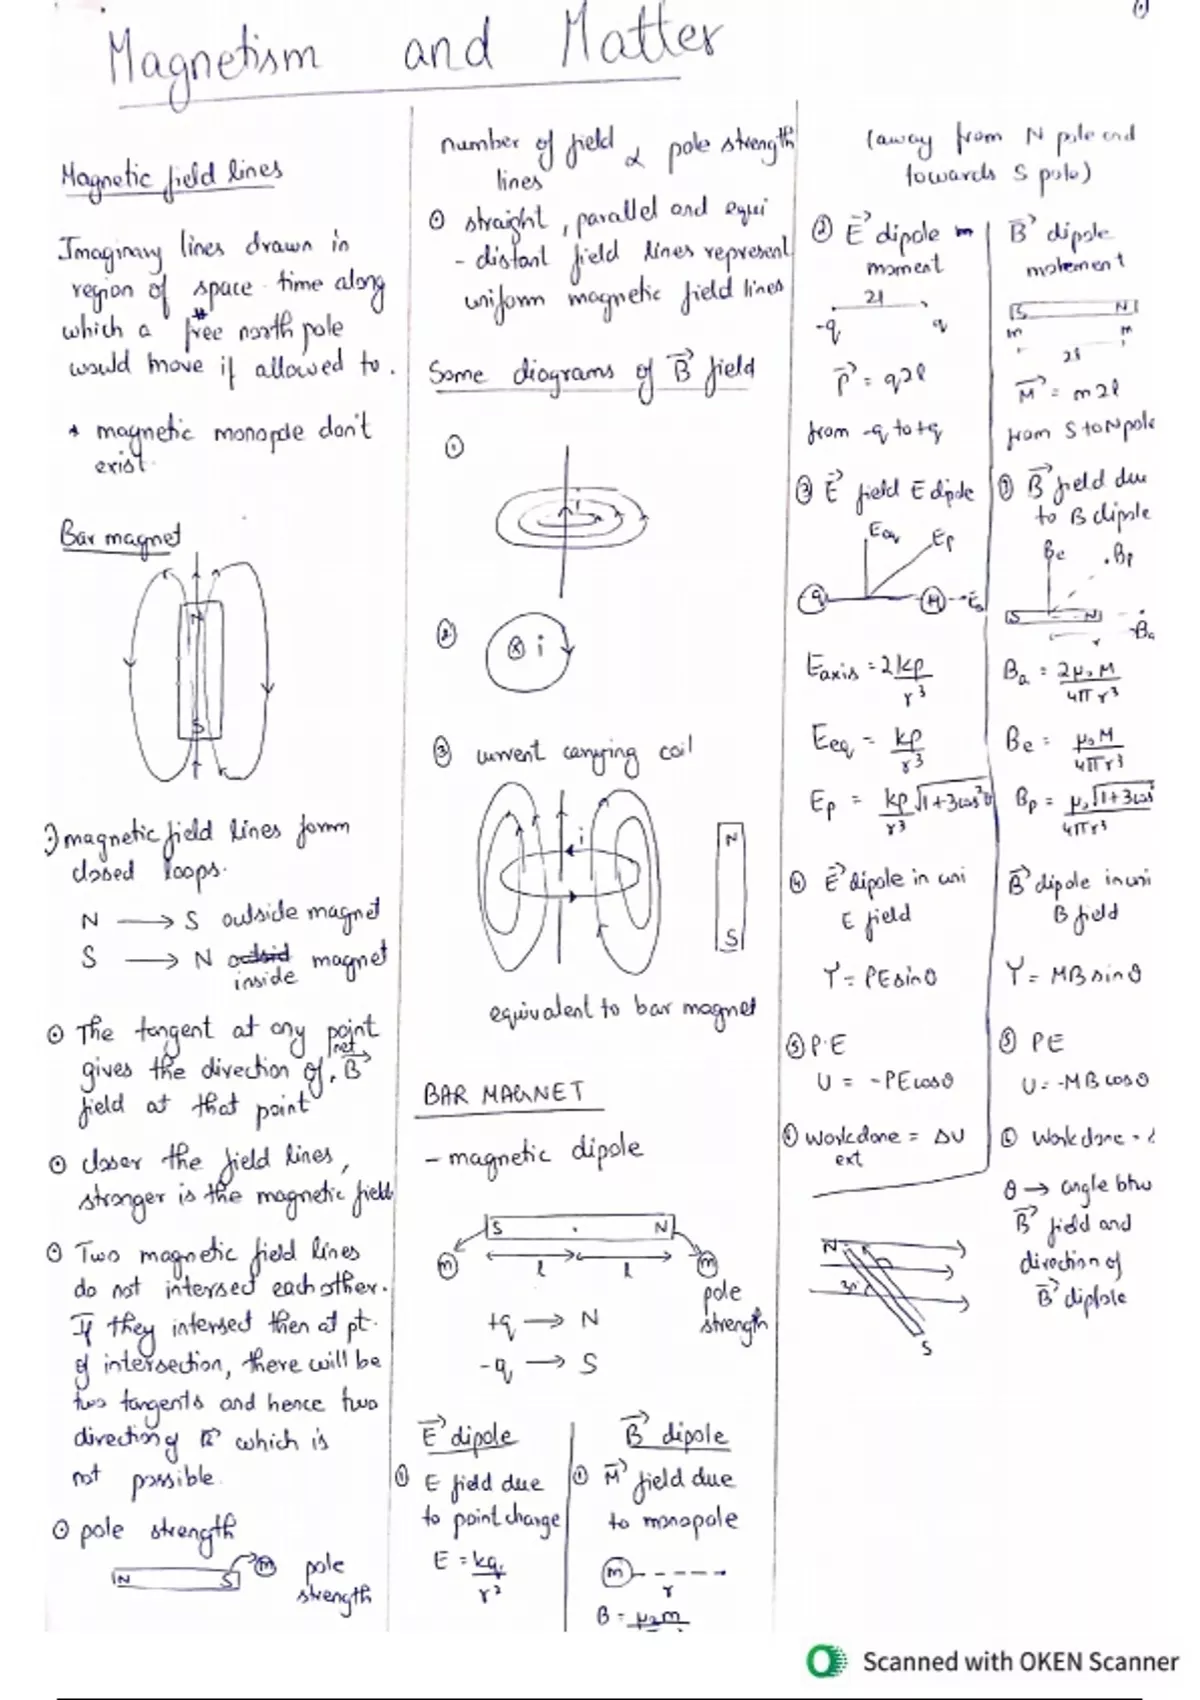 Magnetism and Matter
Magnetic field lines
Imaginary lines drawn in
region of space time along
which a free north pole
would move if allowed to.
* magnetic monopole don't
exist.
Bar magnet
N
S
magnetic field lines form
closed loops.
N → S outside magnet
S → N inside magnet
⊙ The tangent at any point
gives the direction of net B⃗
field at that point
⊙ closer the field lines,
stronger is the magnetic field
⊙ Two magnetic field lines
do not intersed each other.
If they intersed then at pt.
of intersection, there will be
two tangents and hence two
direction of B⃗ which is
not possible.
⊙ pole strength
N S m pole
strength
number of field ∝ pole strength
lines
⊙ straight, parallel and equi
- distant field lines represent
uniform magnetic field lines
Some diagrams of B⃗ field
①
i
②
⊗ i
③ current carrying coil
i
N
S
equivalent to bar magnet
BAR MAGNET
- magnetic dipole
S N
m l l m
pole
strength
+q → N
-q → S
E⃗ dipole
① E field due
to point charge
E = kq
r²
B⃗ dipole
① M⃗ field due
to monopole
m r
B = μ₀m
(away from N pole and
towards S pole)
② E⃗ dipole
moment
2l
-q q
P⃗ = q2l
from -q to +q
③ E⃗ field E dipole
Eeq Ep
Eaxis = 2kp
r³
Eeq = kp
r³
Ep = kp√1+3cos²θ
r³
④ E⃗ dipole in uni
E field
τ = PEsinθ
⑤ P.E
U = -PEcosθ
⑥ workdone = ΔU
ext
B⃗ dipole
S N
m m
2l
M⃗ = m2l
from S to N pole
③ B⃗ field due
to B dipole
Be Bp
S N
r Ba
Ba = 2μ₀M
4πr³
Be = μ₀M
4πr³
Bp = μ₀√1+3cos²
4πr³
B⃗ dipole in uni
B field
τ = MBsinθ
⑤ PE
U = -MBcosθ
⑥ Workdone =
θ → angle btw
B⃗ field and
direction of
B⃗ diplole
N
S
Scanned with OKEN Scanner